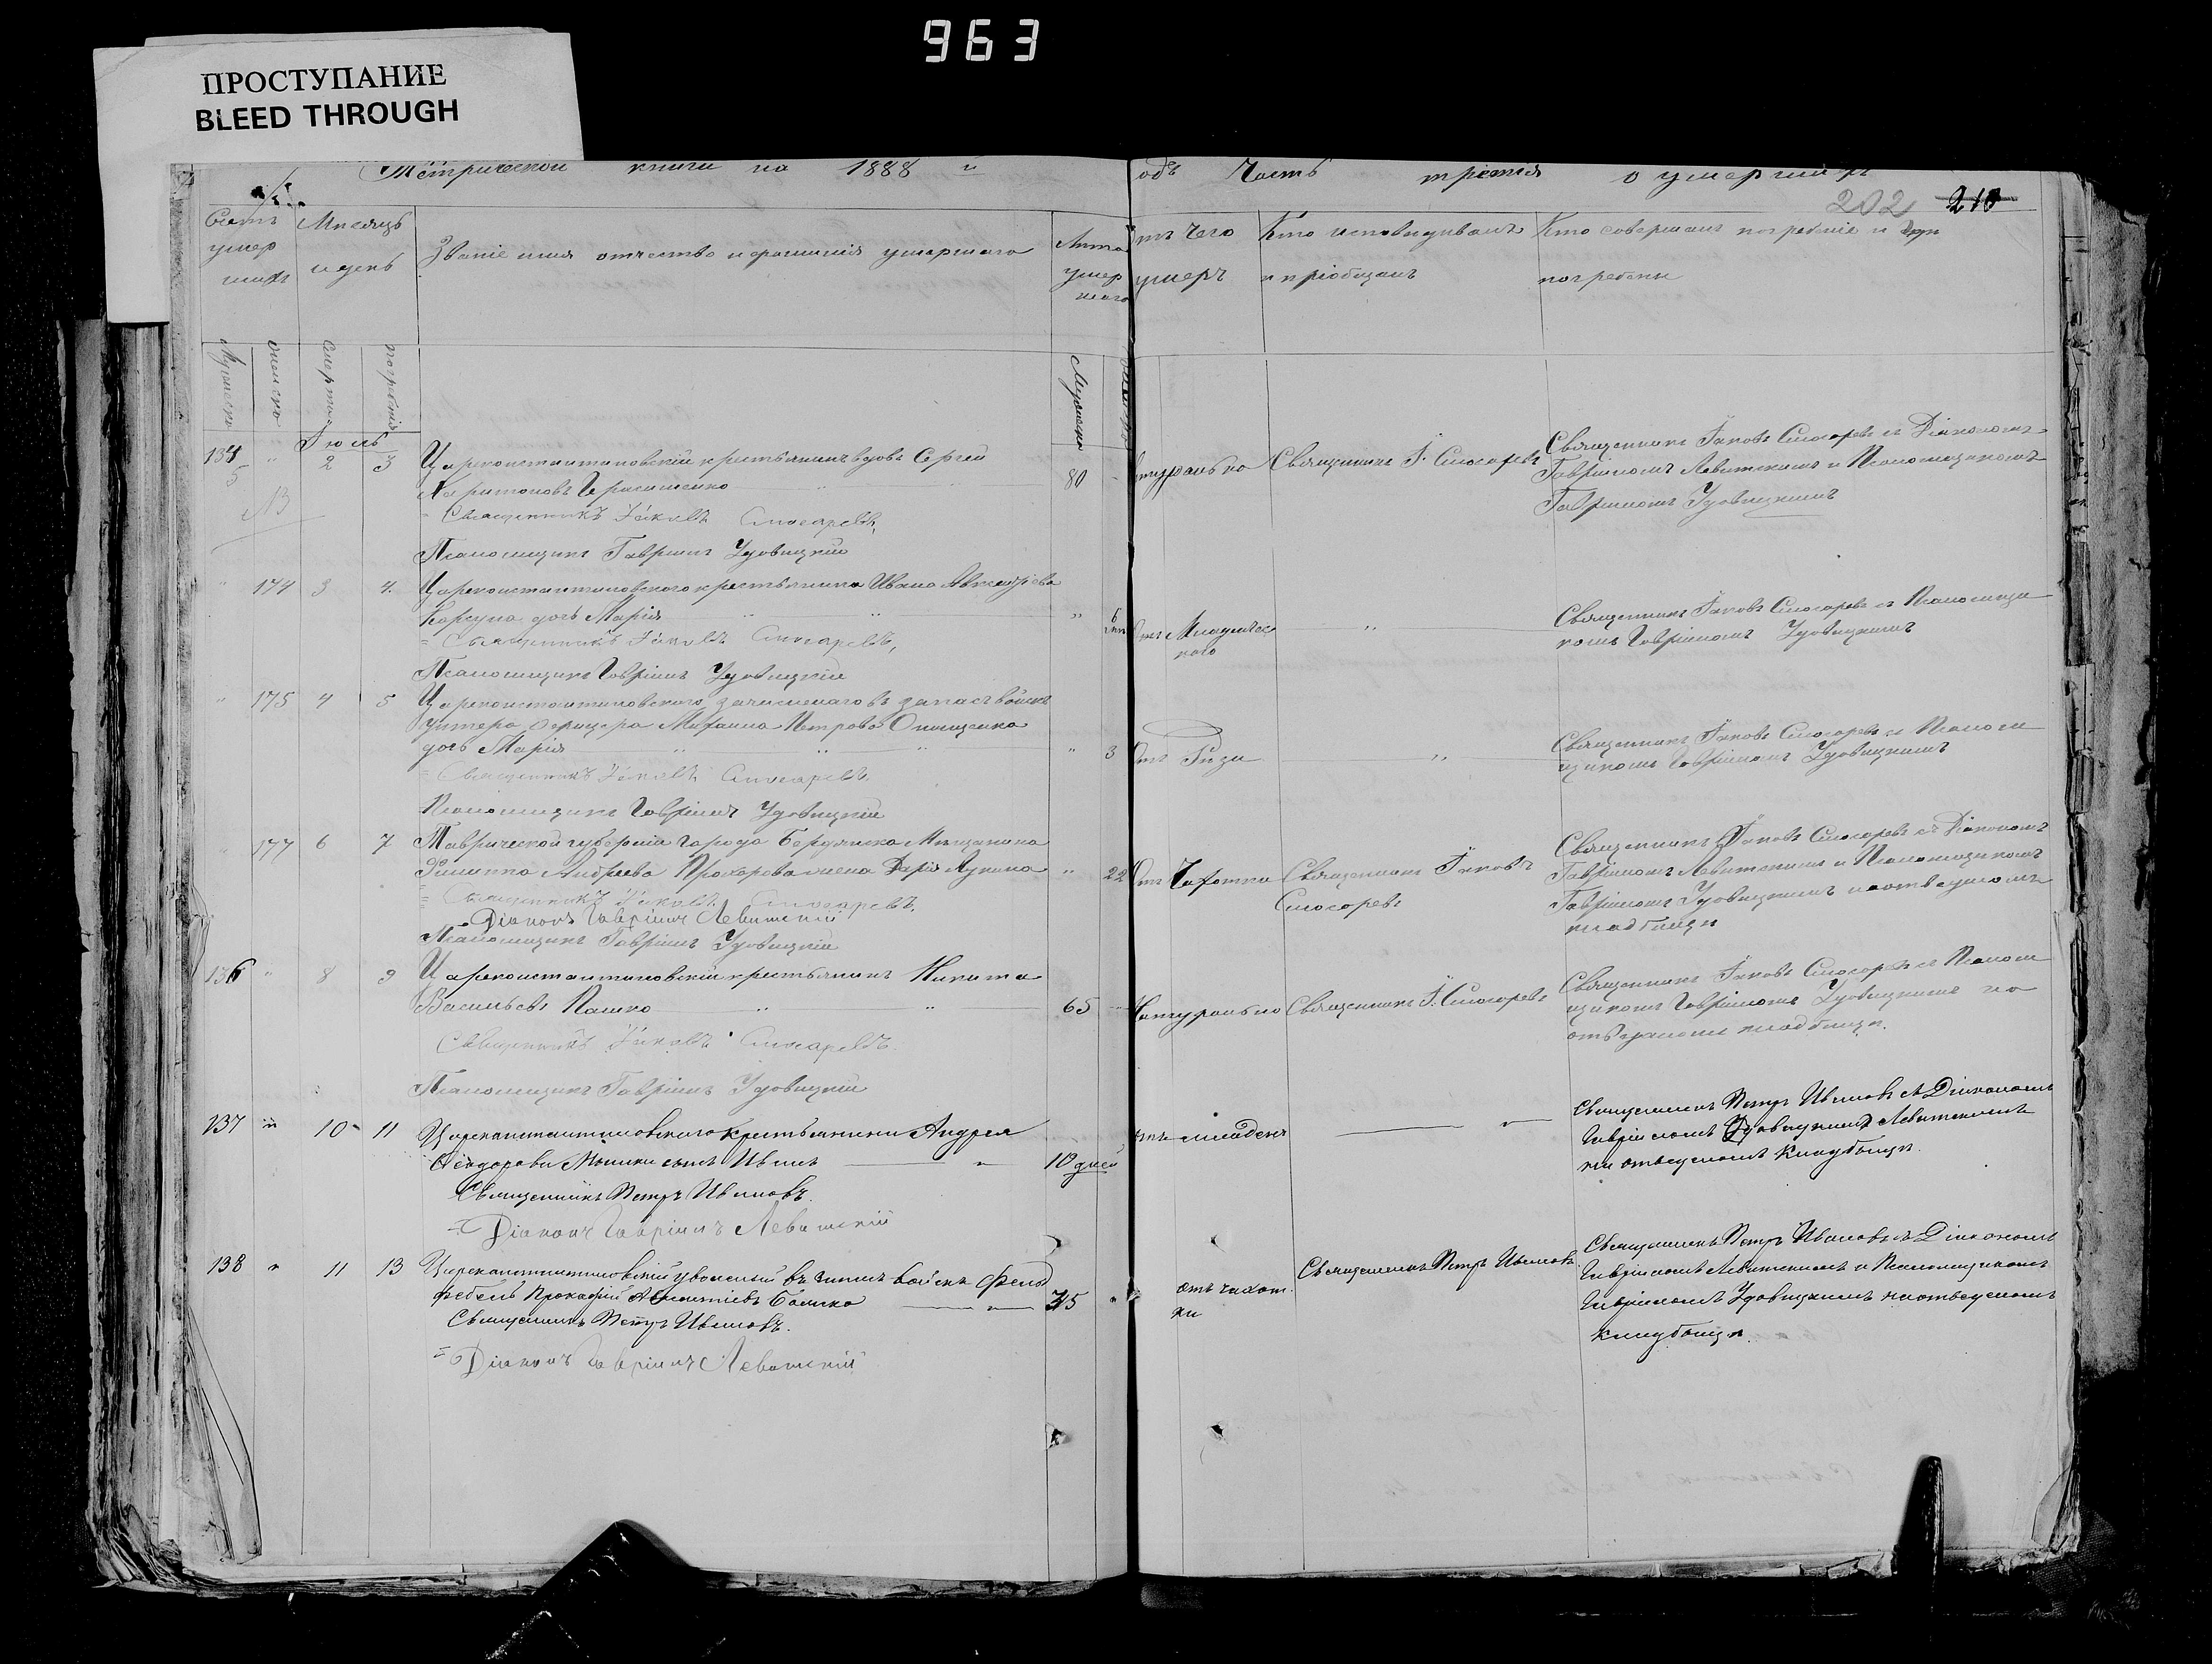 963
ПРОСТУПАНИЕ
BLEED THROUGH
Метрической книги на 1888 й
одъ Часть третія о умершихъ
202 210
Счетъ умер шихъ
Мѣсяцъ и день
Званіе имя отчество и фамилія умершаго
Лѣта умер шаго
отъ чего умеръ
Кто исповѣдывалъ и пріобщалъ
Кто совершалъ погребеніе и гдѣ погребены
Мужеска
женска
смерти
погребенія
Мужеска
Іюль
134 5 " 2 3 Цареконстантиновскій крестьянинъ вдовъ Сергей
Харитоновъ Герасименко 80
Священникъ Іаковъ Слюсаревъ,
Псаломщикъ Гавріилъ Удовицкій
натурально Священникъ І. Слюсаревъ
Священникъ Іаковъ Слюсаревъ съ Діакономъ
Гавріиломъ Левитскимъ и Псаломщикомъ
Гавріиломъ Удовицкимъ
" 174 3 4 Цареконстантиновскаго крестьянина Ивана
Корсуна дочь Марія " 6
Священникъ Іаковъ Слюсаревъ,
Псаломщикъ Гавріилъ Удовицкій
Отъ Младенчес
каго
Священникъ Іаковъ Слюсаревъ съ Псаломщи
комъ Гавріиломъ Удовицкимъ
" 175 4 5 Цареконстантиновского зачисленаго въ запасъ войскъ
унтеръ офицера Михаила Петрова Онищенка
дочь Марія " 3
Священникъ Іаковъ Слюсаревъ
Псаломщикъ Гавріилъ Удовицкій
Отъ
Священникъ Іаковъ Слюсаревъ съ Псалом
щикомъ Гавріиломъ Удовицкимъ
" 177 6 7 Таврической губерніи города Бердянска Мѣщанина
Филиппа Андреева Прохорова жена Дарія Лукина " 22
Священникъ Іаковъ Слюсаревъ.
Діаконъ Гавріилъ Левитскій
Псаломщикъ Гавріилъ Удовицкій
Отъ Чахотки Священникъ Іаковъ
Слюсаревъ
Священникъ Іаковъ Слюсаревъ съ Діакономъ
Гавріиломъ Левитскимъ и Псаломщикомъ
Гавріиломъ Удовицкимъ на отведеномъ
кладбищѣ
136 " 8 9 Цареконстантиновскій крестьянинъ Никита
Васильевъ Пашко 65
Священникъ Іаковъ Слюсаревъ.
Псаломщикъ Гавріилъ Удовицкій
Натурально Священникъ І. Слюсаревъ
Священникъ Іаковъ Слюсаревъ съ Псалом
щикомъ Гавріиломъ Удовицкимъ на
отведеномъ кладбищѣ.
137 " 10 11 Цареконстантиновского крестьянина Андрея
Ѳеодорова сынъ Иванъ 10 дней
Священникъ Петръ Ивановъ.
Діаконъ Гавріилъ Левитскій
отъ младенч
Священникъ Петръ Ивановъ съ Діакономъ
Гавріиломъ Левитскимъ
на отведеномъ кладбищѣ.
138 " 11 13 Цареконстантиновскій уволеный въ запасъ войскъ фельд
фебель Прокофій Балыка 35
Священникъ Петръ Ивановъ.
Діаконъ Гавріилъ Левитскій
отъ чахот
ки
Священникъ Петръ Ивановъ
Священникъ Петръ Ивановъ съ Діакономъ
Гавріиломъ Левитскимъ и Псаломщикомъ
Гавріиломъ Удовицкимъ на отведеномъ
кладбищѣ.